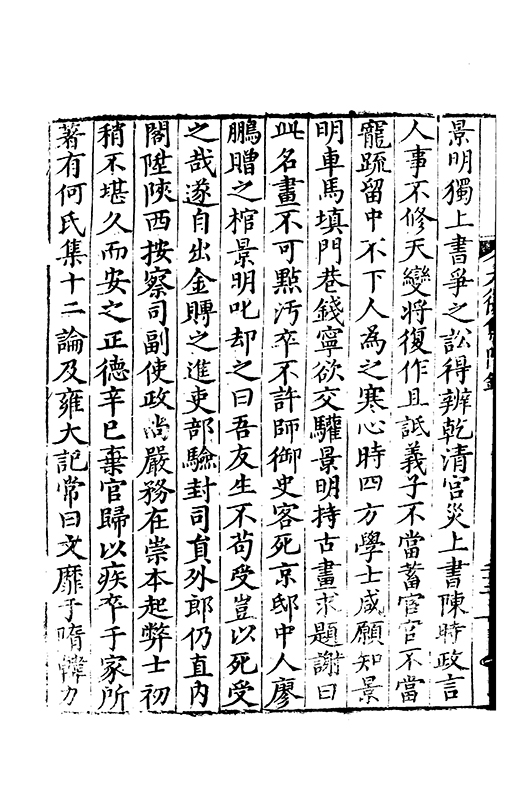 景明獨上書爭之訟得辨乾清宮災上書陳時政言
人事不修天變將復作且詆義子不當蓄宦官不當
寵疏留中不下人為之寒心時四方學士咸願知景
明車馬填門巷錢寧欲交驩景明持古畫求題謝曰
此名畫不可點汚卒不許師御史客死京邸中人廖
鵬贈之棺景明叱却之曰吾友生不苟受豈以死受
之哉遂自出金賻之進吏部驗封司員外郎仍直內
閣陞陝西按察司副使政尚嚴務在崇本起弊士初
稍不堪久而安之正德辛巳棄官歸以疾卒于家所
著有何氏集十二論及雍大記常曰文靡于隋韓力